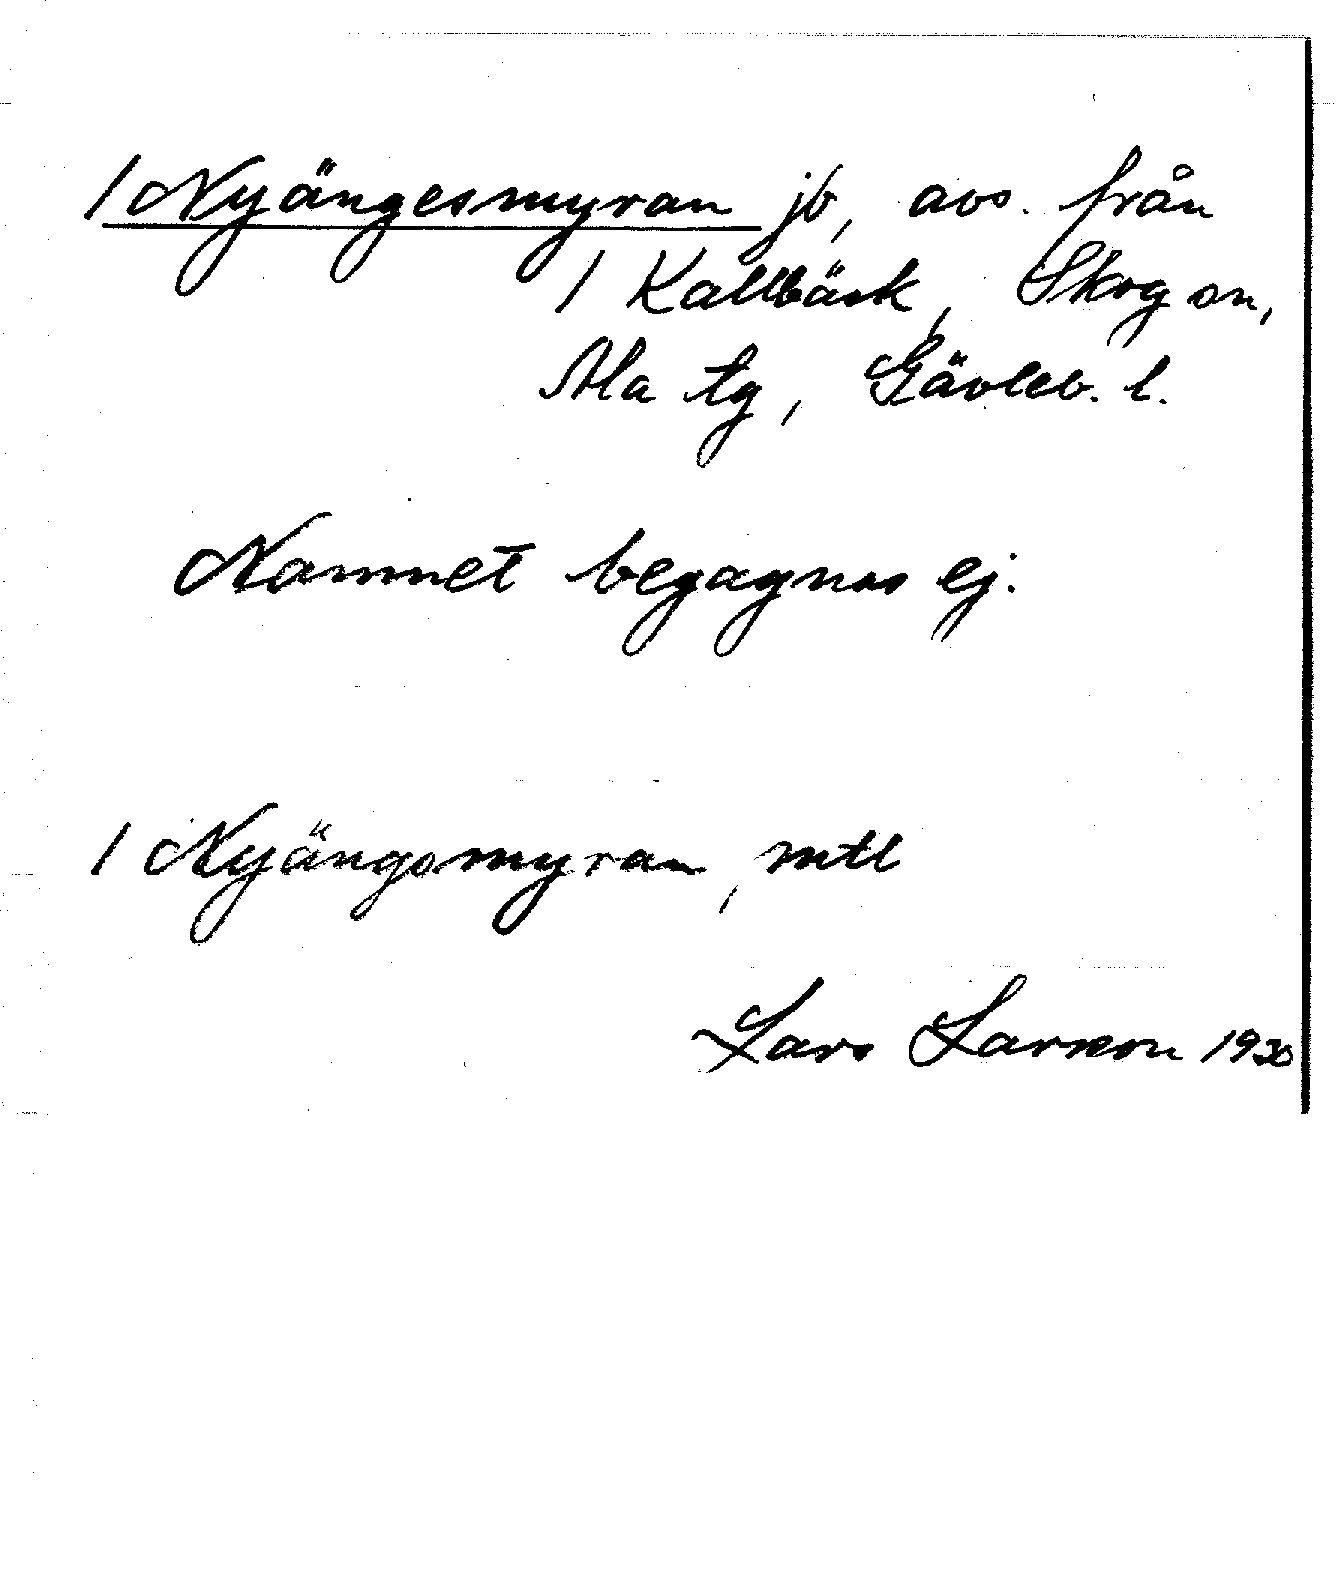 / Nyängesmyran jb, avs. från
/ Kallbäck, Skog sn,
Ala tg, Gävleb. l.
Namnet begagnas ej.
/ Nyängsmyran, mtl
Lars Larsson 1930